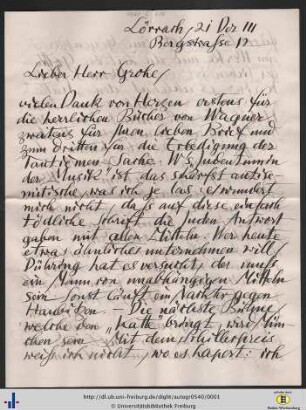 Lörrach, 21 Dez III
Bergstrasse 17
Lieber Herr Grohe,
vielen Dank von Herzen erstens für
die herrlichen Bücher von Wagner
zweitens für Ihren lieben Brief und
zum dritten für die Erledigung der
Tantiemen Sache. W's „Judentum in
der Musik" ist das schärfst antise-
mitische, was ich je las. es wundert
mich nicht, dass auf diese einfach
tödliche Schrift die Juden Antwort
gaben mit allen Mitteln. Wer heute
etwas ähnliches unternehmen will,
Dühring hat es versucht, der muss
ein Mann von unabhängigen Mitteln
sein sonst läuft ein gegen
. — Die nächste Bühne
welche den „ bringt, wird Mün-
chen sein. Mit dem Schillerpreis
weiss ich nicht, wo es hapert: ich
http://dl.ub.uni-freiburg.de/diglit/autogr0540/0001
© Universitätsbibliothek Freiburg